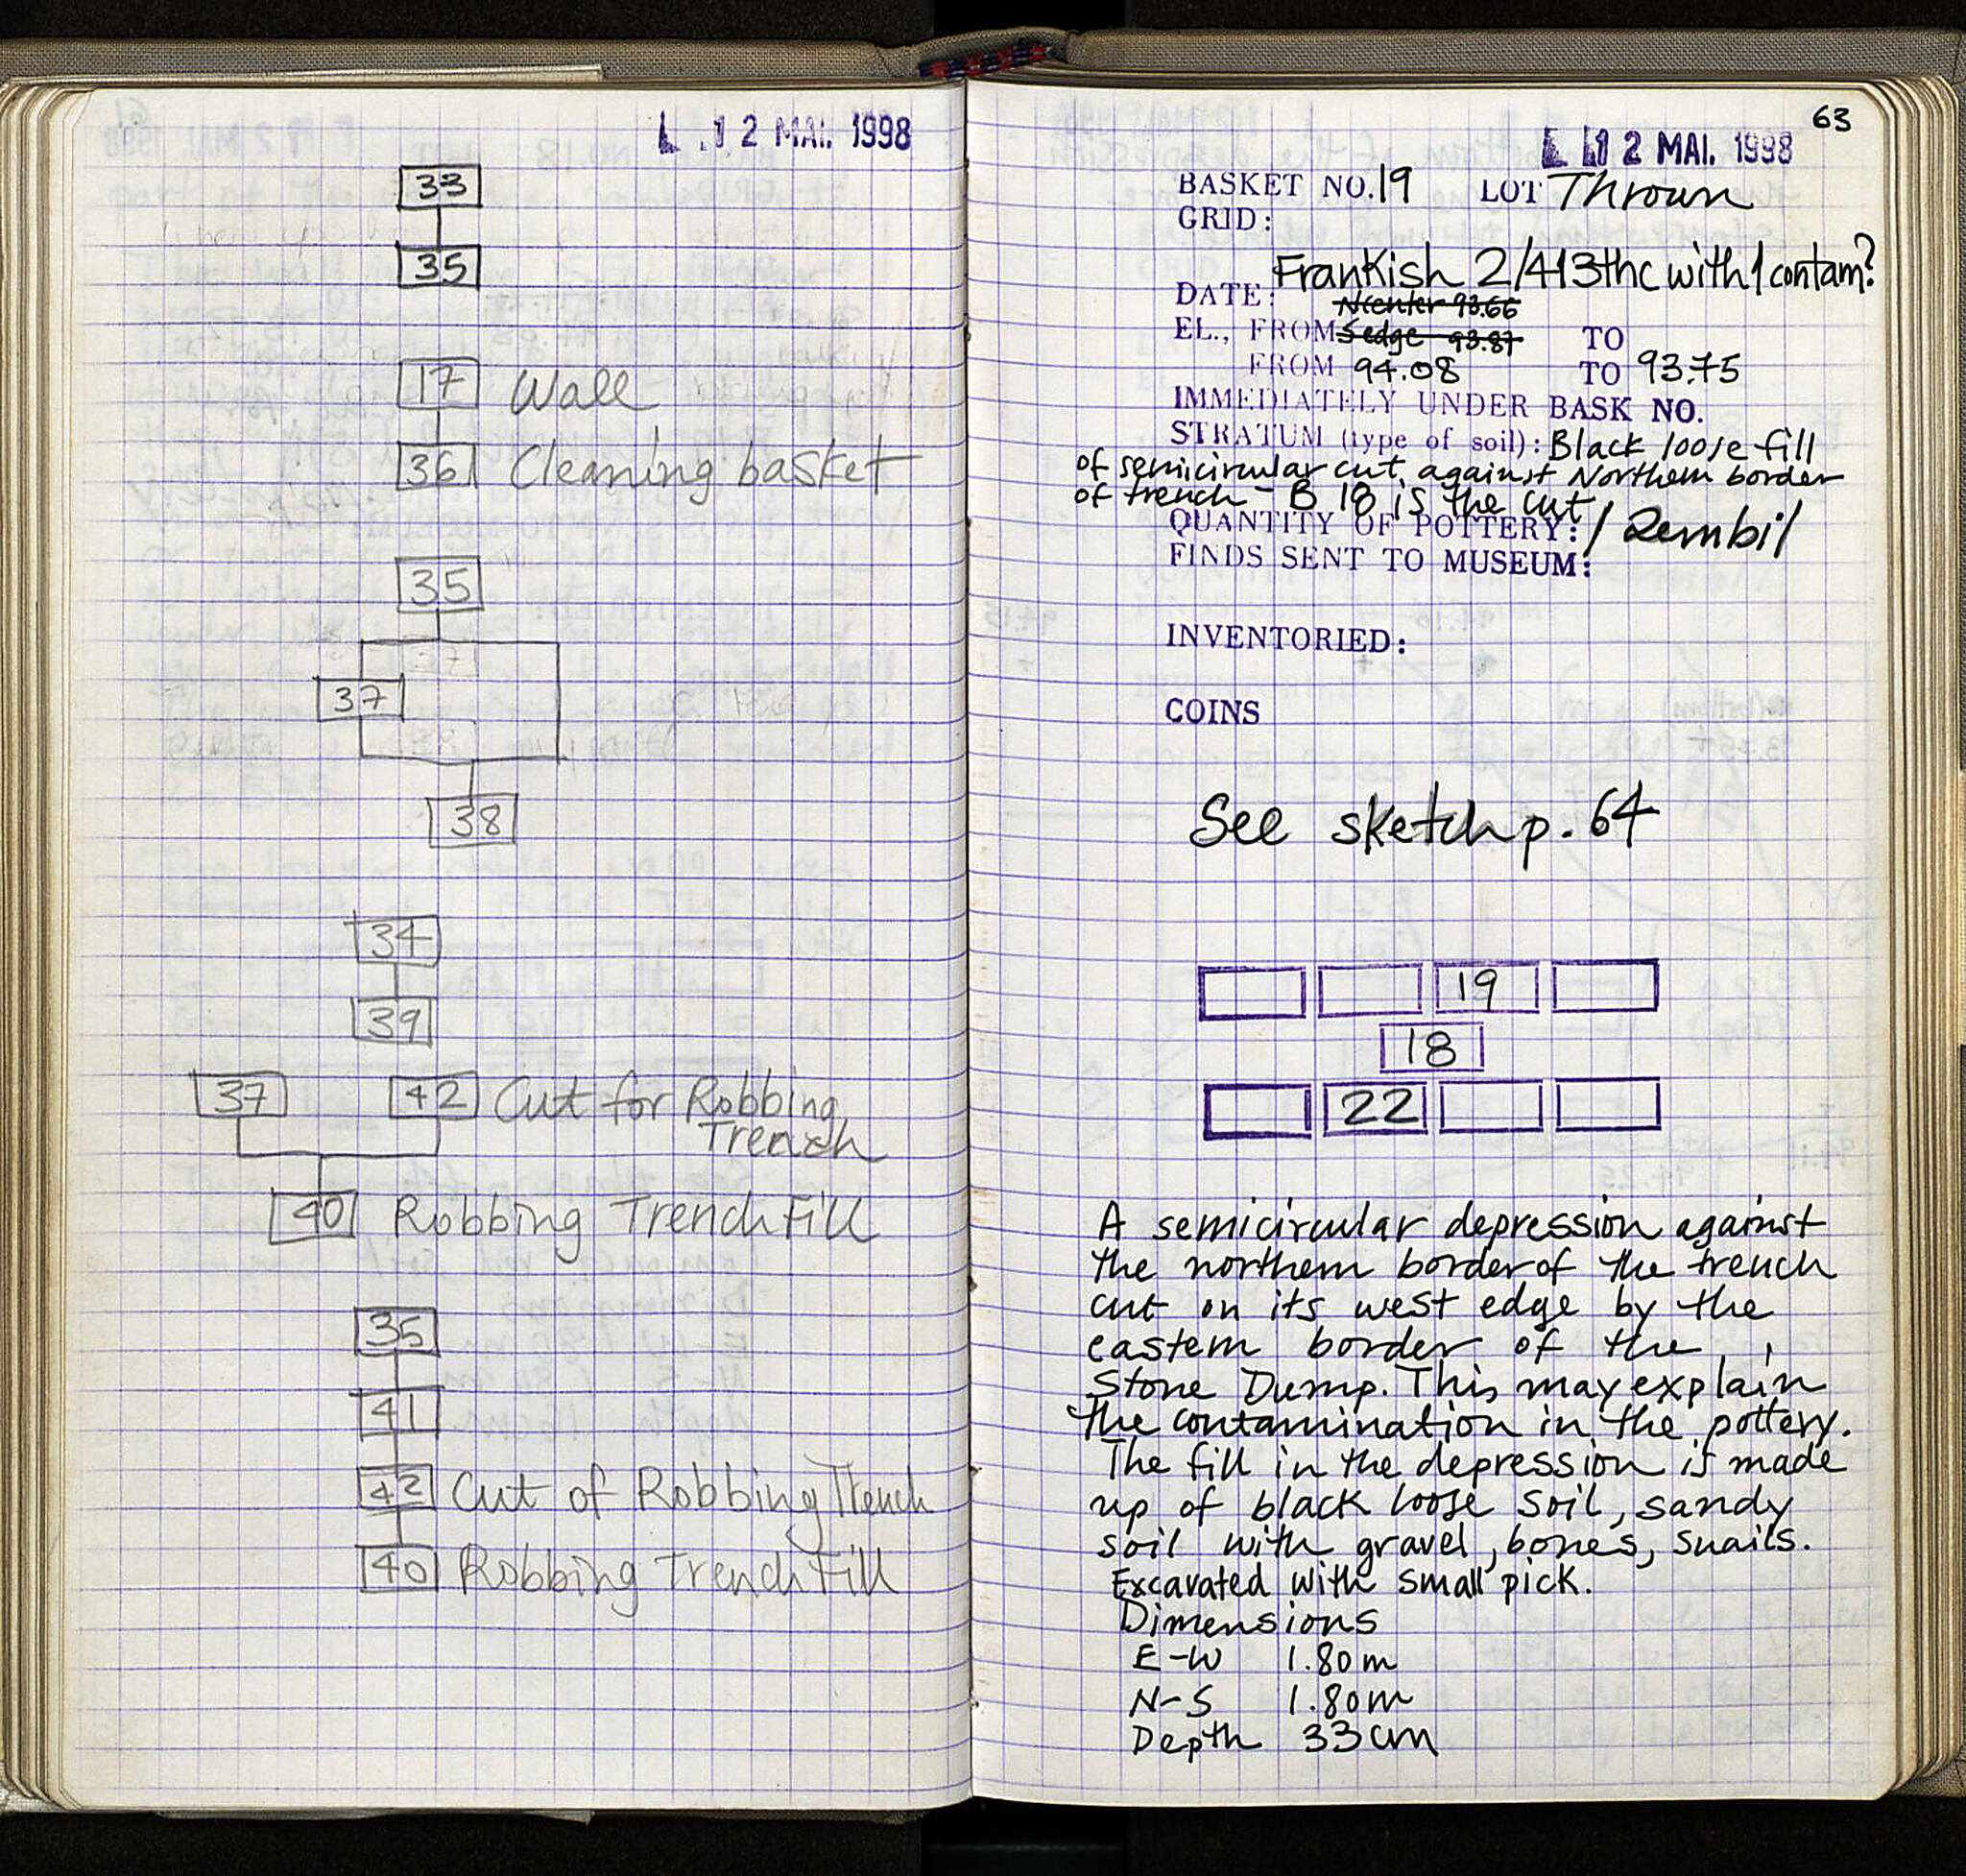 L 12 MAI. 1998
33
35
17 Wall
36 Cleaning basket
35
37
38
34
39
37 42 Cut for Robbing
Trench
40 Robbing Trench Fill
35
41
42 Cut of Robbing Trench
40 Robbing Trench Fill
63
12 MAI. 1998
BASKET NO. 19 LOT Thrown
GRID:
Frankish 2/4 13thc with 1 contam?
DATE:
N center 93.66
EL., FROM S edge 93.87 TO
FROM 94.08 TO 93.75
IMMEDIATELY UNDER BASK NO.
STRATUM (type of soil): Black loose fill
of semicircular cut against Northern border
of trench - B 18 is the cut
QUANTITY OF POTTERY: 1 Zembil
FINDS SENT TO MUSEUM:
INVENTORIED:
COINS
See sketch p. 64
19
18
22
A semicircular depression against
the northern border of the trench
cut on its west edge by the
eastern border of the
Stone Dump. This may explain
the contamination in the pottery.
The fill in the depression is made
up of black loose soil, sandy
soil with gravel, bones, snails.
Excavated with small pick.
Dimensions
E-W 1.80m
N-S 1.80m
Depth 33cm